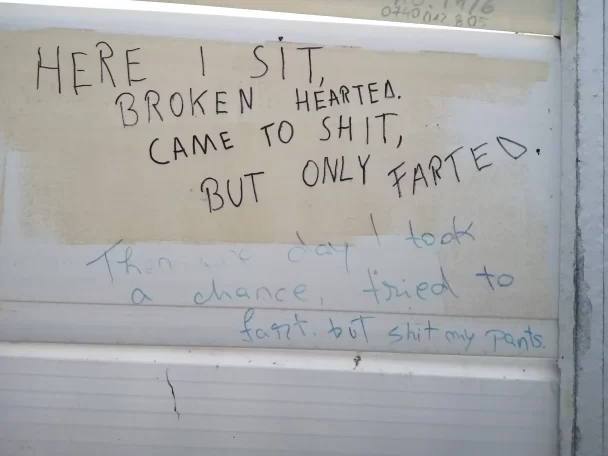 HERE I SIT,
BROKEN HEARTED.
CAME TO SHIT,
BUT ONLY FARTED.
day I took
a chance, tried to
fart. but shit my pants.